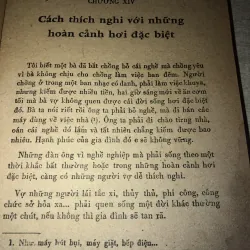 CHƯƠNG XIV
Cách thích nghi với những
hoàn cảnh hơi đặc biệt
Tôi biết một bà đã bắt chồng bỏ cái nghề mà chồng yêu
vì bà không chịu cho chồng làm việc ban đêm. Người
chồng ở trong một ban nhạc, tại một khách sạn ở
nhưng kiếm được nhiều tiền, hai giờ sáng mới về ăn cơm
tối mà bà vợ không quen được cái đời sống hơi đặc biệt
đó. Rốt cuộc bà nài ông ta phải bỏ nghề, mà đi bán các
máy dùng về việc nhà (¹). Ông ta phải đi chào từng nhà,
các nghề đó làm và tất nhiên chẳng kiếm được bao
nhiêu. Hạnh phúc của gia đình đó không vững.
Những đàn ông vì nghề nghiệp mà phải sống theo một
thời khắc bất thường hoặc trong những hoàn cảnh hơi
đặc biệt, càng có những người vợ dễ thích nghi.
Vợ những người lái tắc xi, thủy thủ, phi công, công
chức sở hỏa xa... phải quen sống một đời khác thường
một chút, nếu không thì gia đình sẽ tan rã.
1. Như máy hút bụi, máy giặt, bếp điện...